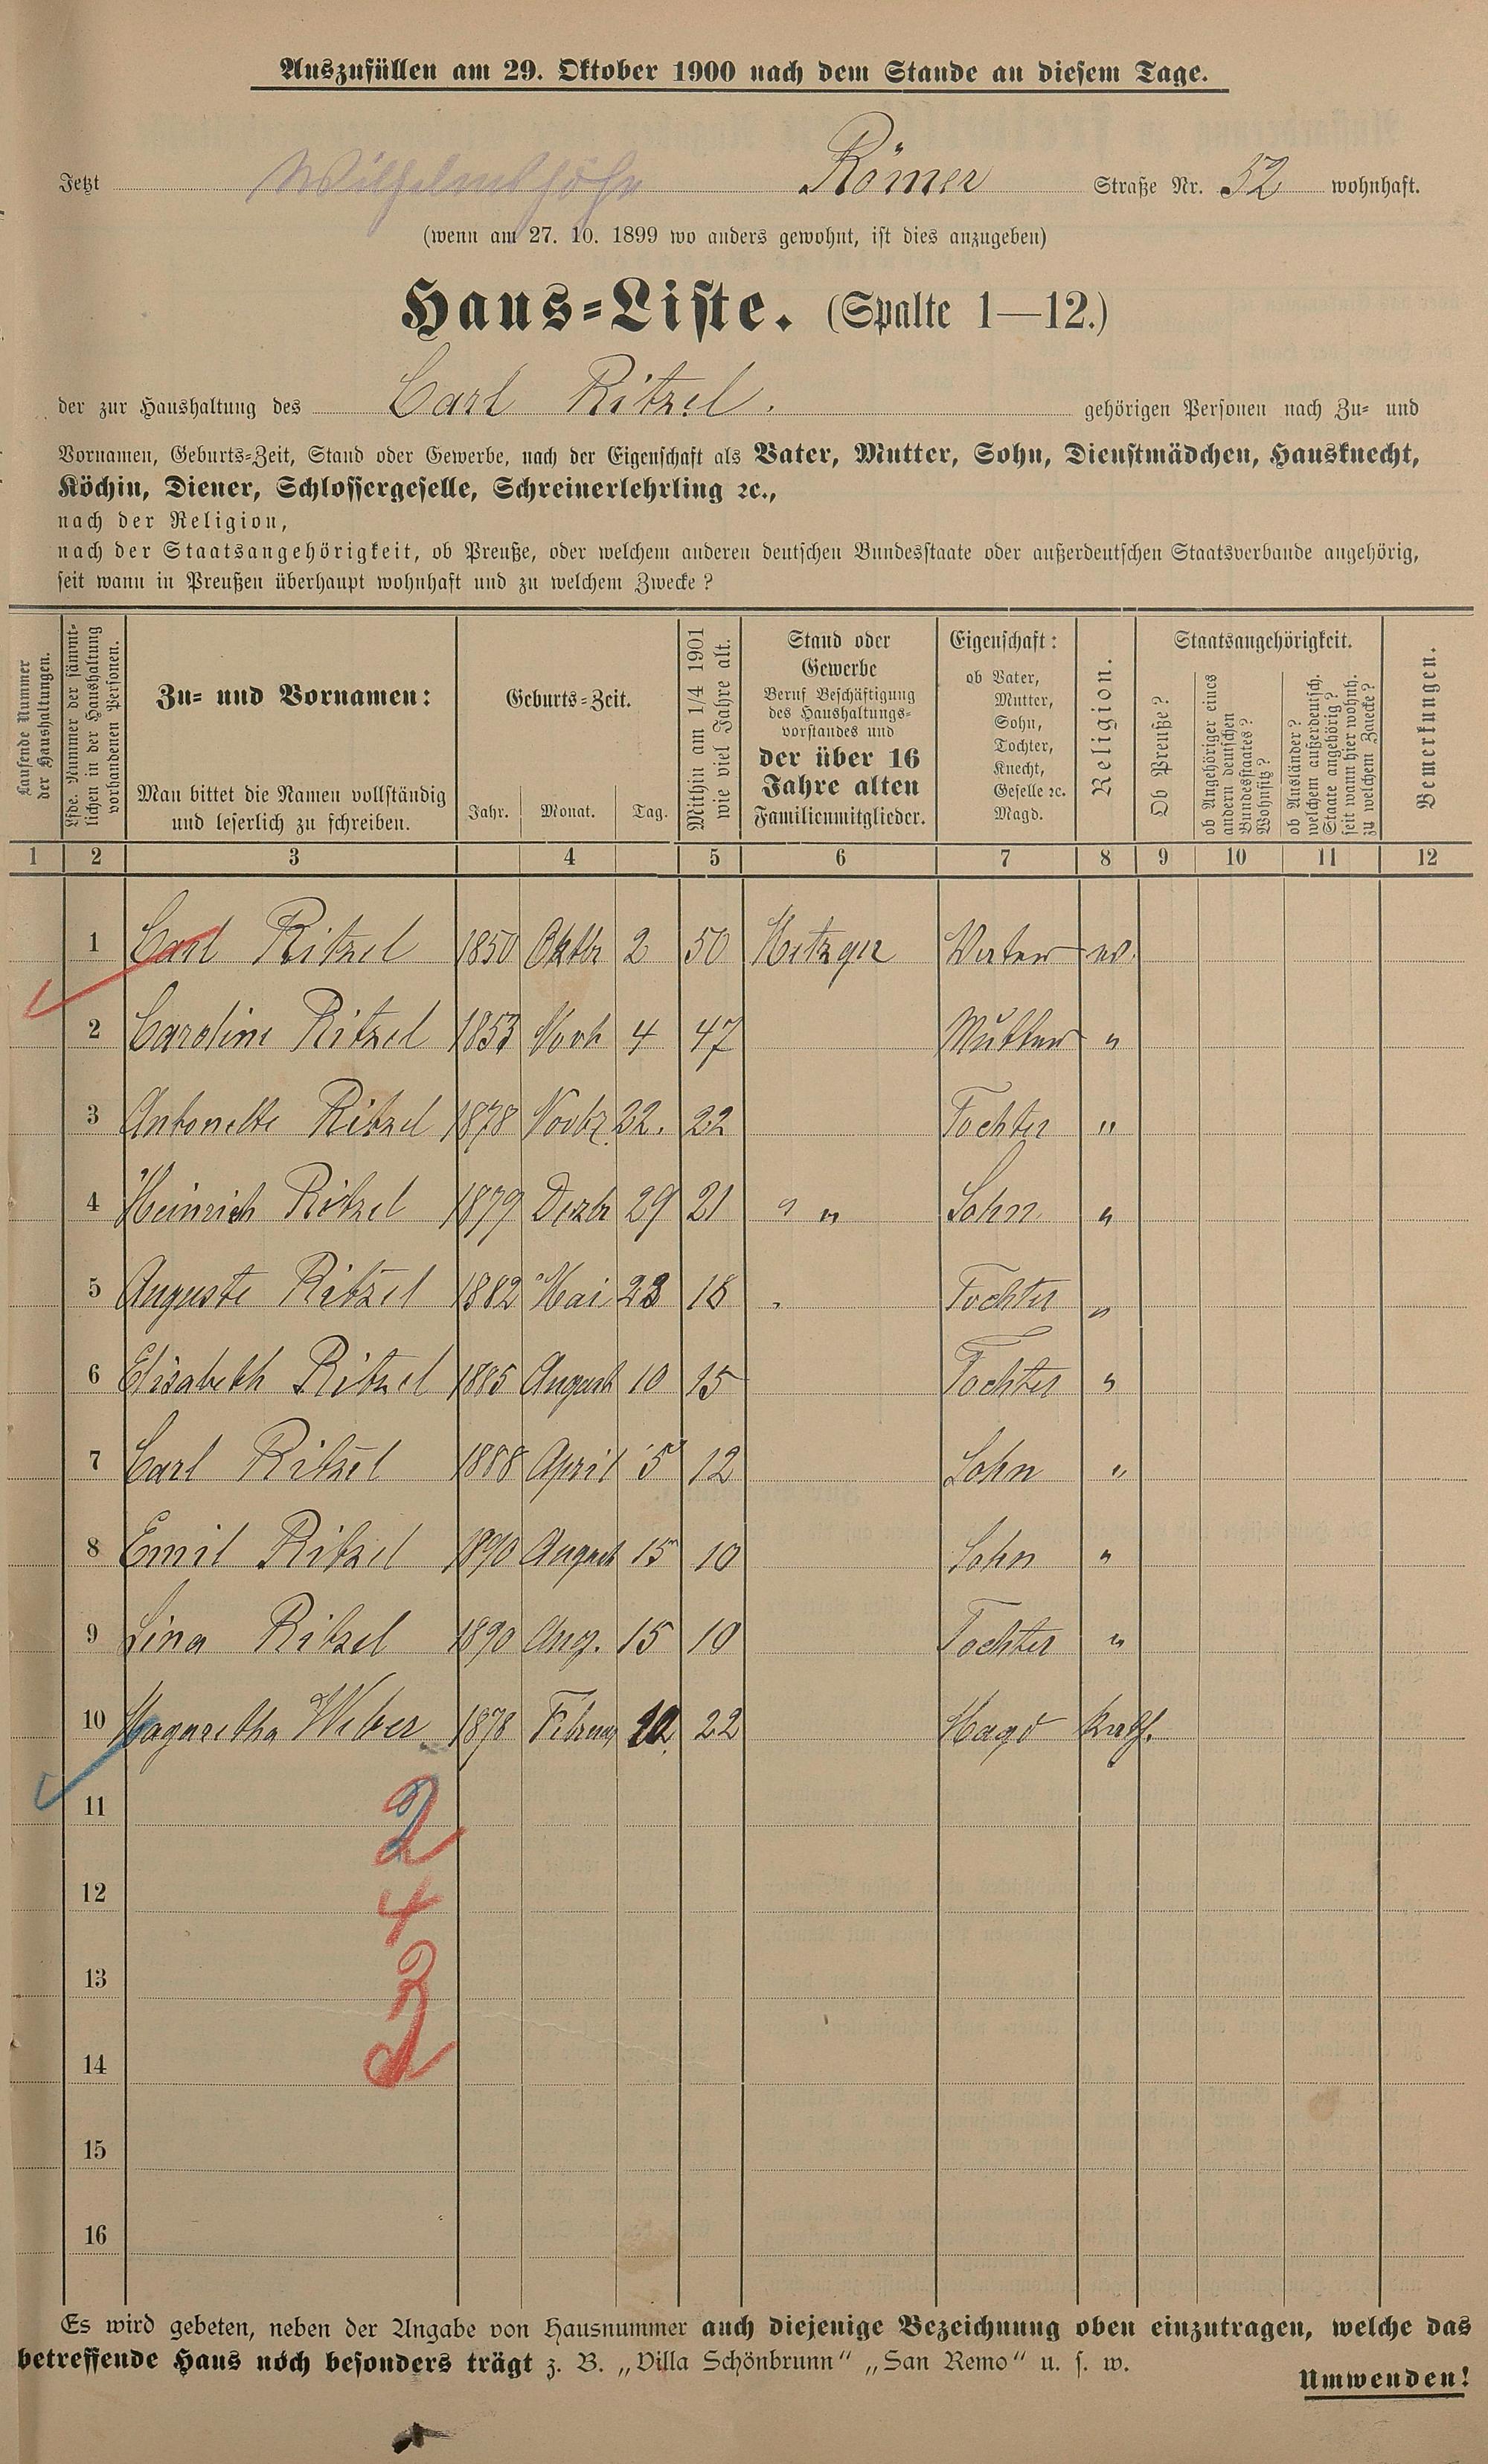 Auszufüllen am 29. Oktober 1900 nach dem Stande an diesem Tage.
Jetzt Wilhelmshöhe Römer Straße Nr. 52 wohnhaft.
(wenn am 27. 10. 1899 wo anders gewohnt, ist dies anzugeben)
Haus-Liste. (Spalte 1—12.)
der zur Haushaltung des Carl Ritzel. gehörigen Personen nach Zu- und
Vornamen, Geburts-Zeit, Stand oder Gewerbe, nach der Eigenschaft als Vater, Mutter, Sohn, Dienstmädchen, Hausknecht,
Köchin, Diener, Schlossergeselle, Schreinerlehrling ꝛc.,
nach der Religion,
nach der Staatsangehörigkeit, ob Preuße, oder welchem anderen deutschen Bundesstaate oder außerdeutschen Staatsverbande angehörig,
seit wann in Preußen überhaupt wohnhaft und zu welchem Zwecke?
Laufende Nummer
der Haushaltungen.
Lfde. Nummer der sämmt-
lichen in der Haushaltung
vorhandenen Personen.
Zu- und Vornamen:
Man bittet die Namen vollständig
und leserlich zu schreiben.
Geburts-Zeit.
Jahr. Monat. Tag.
Mithin am 1/4 1901
wie viel Jahre alt.
Stand oder
Gewerbe
Beruf Beschäftigung
des Haushaltungs-
vorstandes und
der über 16
Jahre alten
Familienmitglieder.
Eigenschaft:
ob Vater,
Mutter,
Sohn,
Tochter,
Knecht,
Geselle ꝛc.
Magd.
Religion.
Staatsangehörigkeit.
Ob Preuße?
ob Angehöriger eines
andern deutschen
Bundesstaates?
Wohnsitz?
ob Ausländer?
welchem außerdeutsch.
Staate angehörig?
seit wann hier wohnh.
zu welchem Zwecke?
Bemerkungen.
1 2 3 4 5 6 7 8 9 10 11 12
1 Carl Ritzel 1850 Oktbr 2 50 Metzger Vater ev.
2 Caroline Ritzel 1853 4 47 Mutter "
3 Antonette Ritzel 1878 Novbr. 22. 22 Tochter "
4 Heinrich Ritzel 1879 Dezbr 29 21 " " Sohn "
5 Auguste Ritzel 1882 Mai 23 18 Tochter "
6 Elisabeth Ritzel 1885 August 10 15 Tochter "
7 Carl Ritzel 1888 April 5 12 Sohn "
8 Emil Ritzel 1890 August 15 10 Sohn "
9 Lina Ritzel 1890 Aug. 15 10 Tochter "
10 Magaretha Weber 1878 Februar 22 Magd kath.
11 2
12 4
13
14
15
16
Es wird gebeten, neben der Angabe von Hausnummer auch diejenige Bezeichnung oben einzutragen, welche das
betreffende Haus noch besonders trägt z. B. „Villa Schönbrunn" „San Remo" u. s. w.
Umwenden!